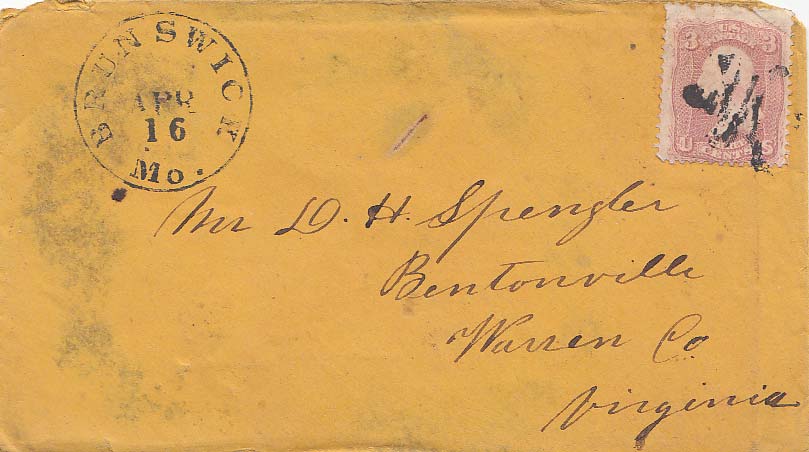 BRUNSWICK
APR
16
Mo.
3 3
U S
CENTS
Mr D. H. Spengler
Bentonville
Warren Co
Virginia